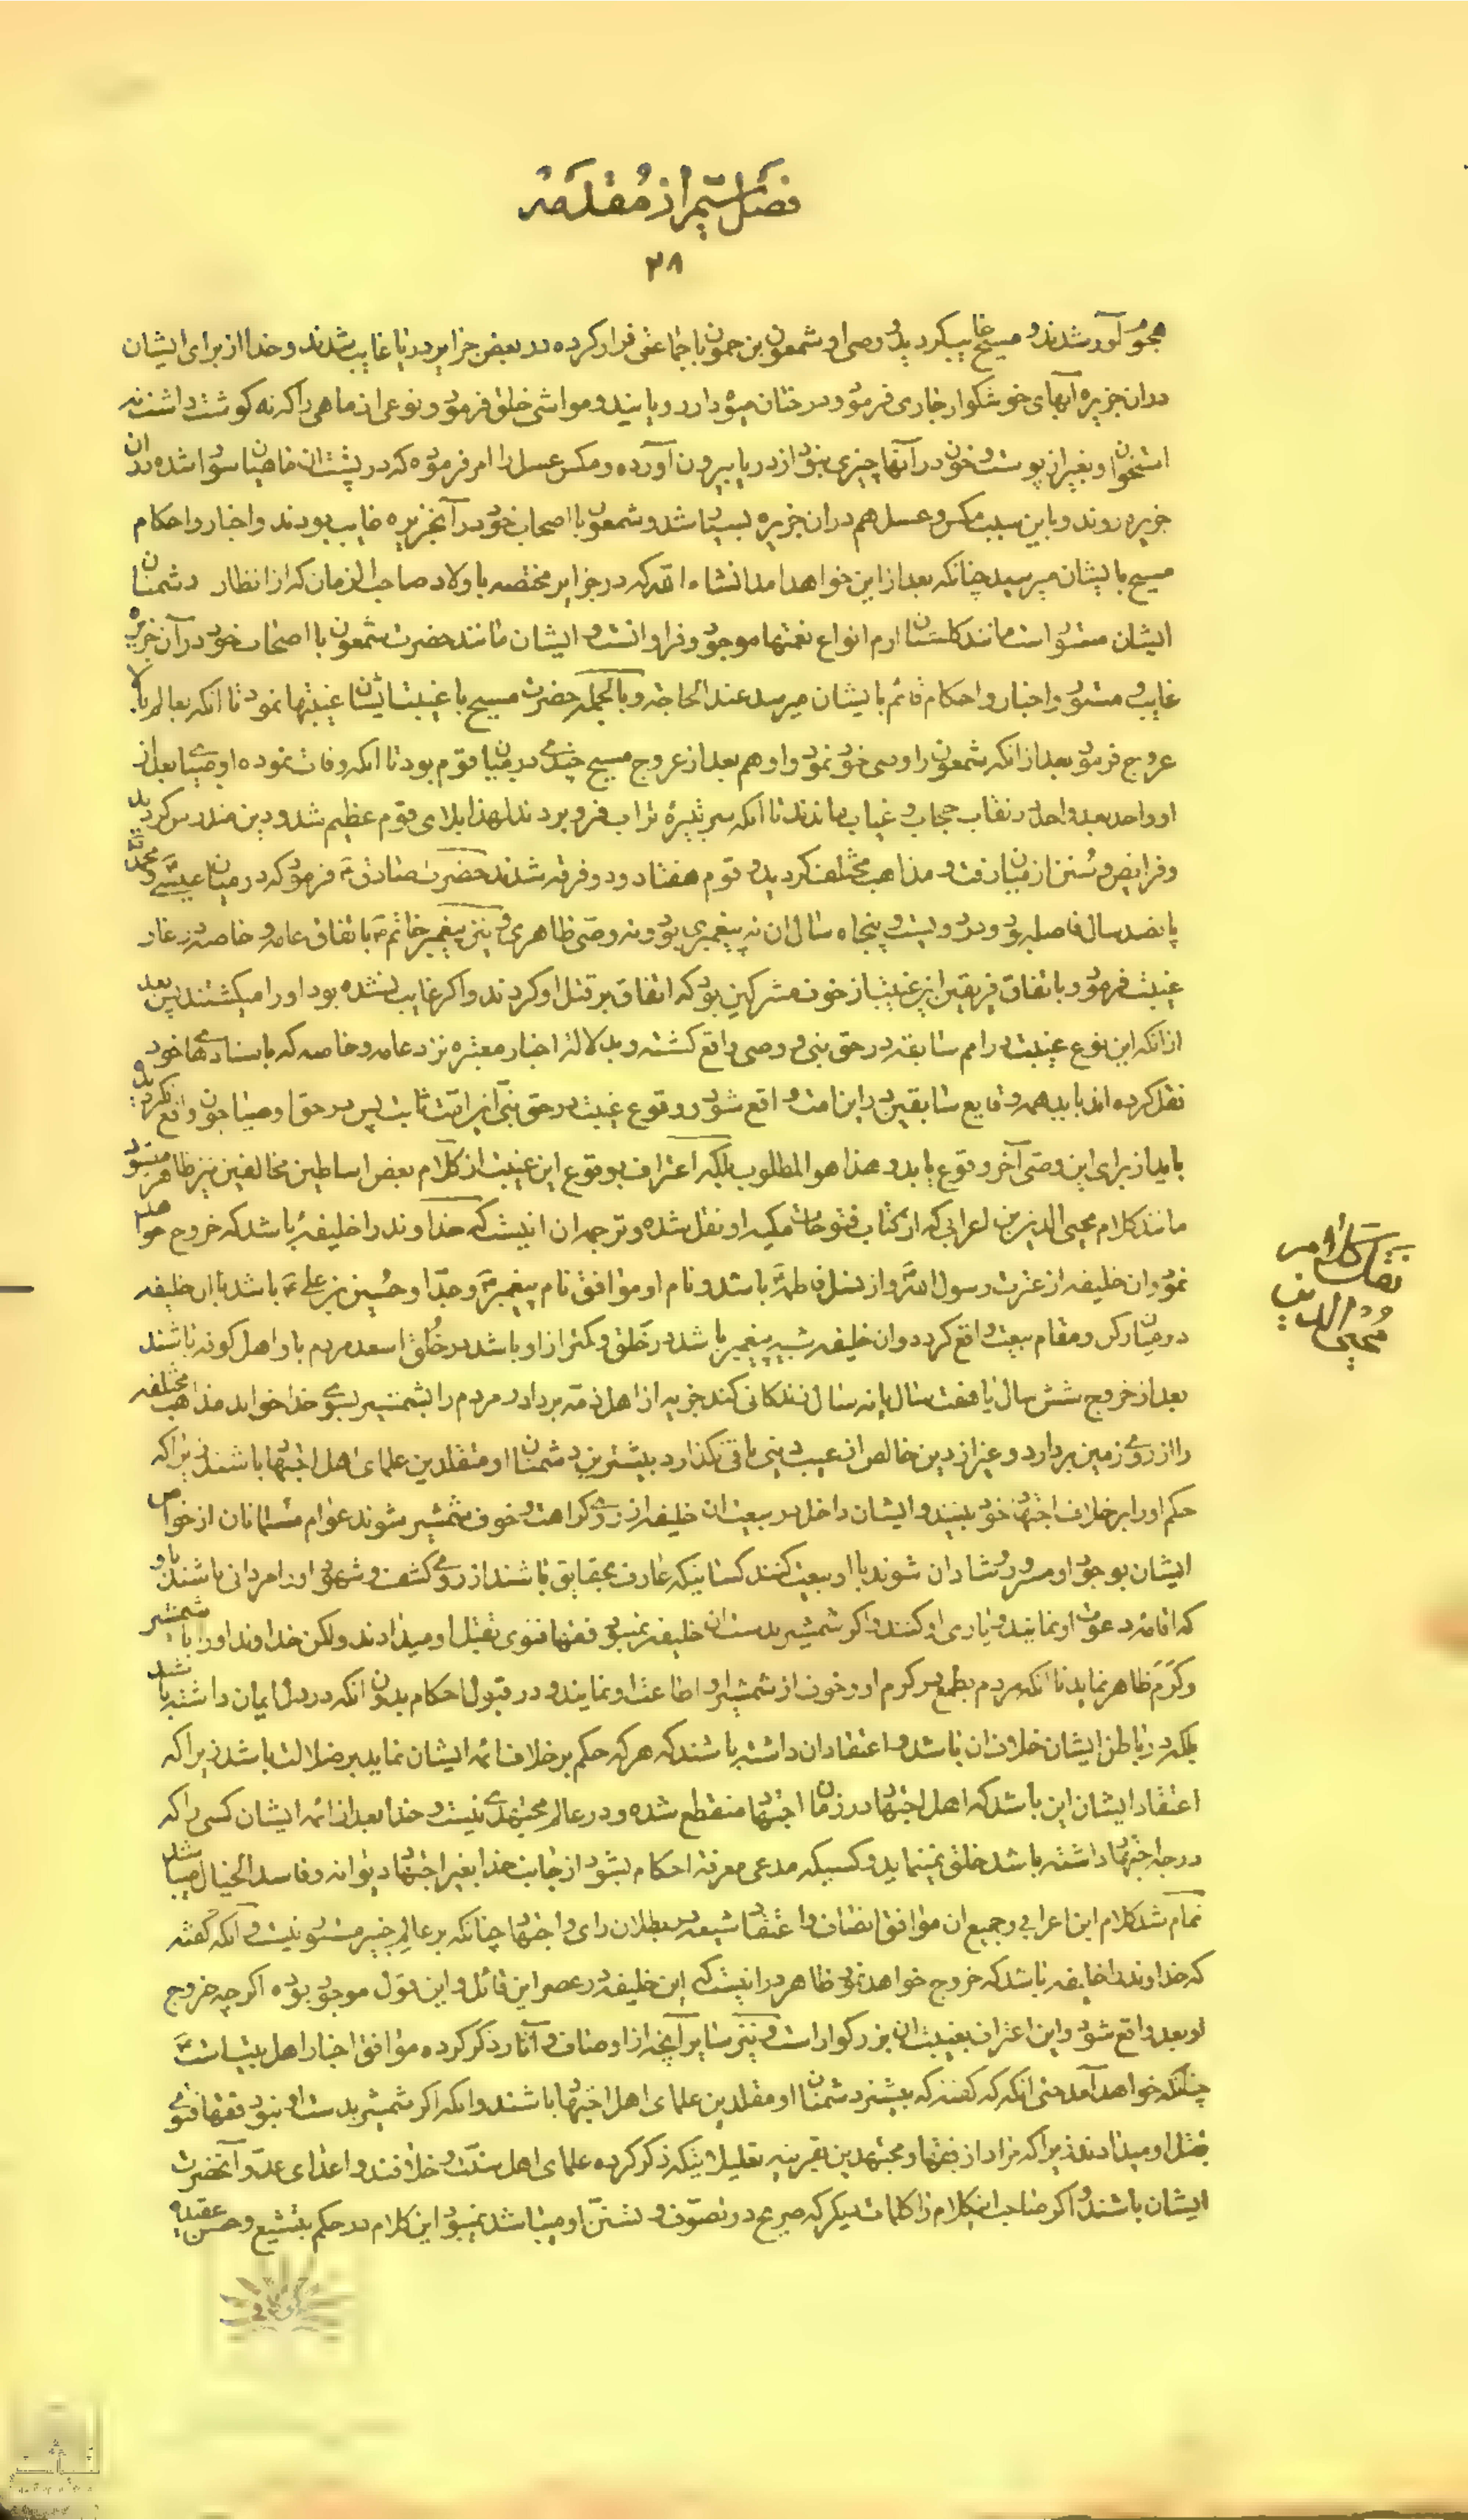 فصل ششم از مقدمه
۲۸
هجوم آور شدند و مسیح غایب گردید و وصی او شمعون بن حمون با جماعتی فرار کرده در بعض جزایر دریا غایب شدند و خدا از برای ایشان
در ان جزیره آبهای خوشکوار جاری فرمود و درختان میوه دار رویانید و مواشی خلق فرمود و نوعی از ماهی را که نه کوشت داشت نه
استخوان و بغیر از پوست و خون در آنها چیزی نبود از دریا بیرون آورده و مکس عسل را امر فرموده که در پشت ان ماهیان سوار شده بدان
جزیره روند و باین سبب مکس و عسل هم در ان جزیره بسیار شد و شمعون با اصحاب خود در آنجزیره غایب بودند و اخبار و احکام
مسیح بایشان میرسید چنانکه بعد از این خواهد امد انشاء الله که در جزایر مختصه باولاد صاحب الزمان که از انظار دشمنان
ایشان مستور است مانند کلستان ارم انواع نعمتها موجود و فراوانست و ایشان مانند حضرت شمعون با اصحاب خود در آن جزیره
غایب و مستور و اخبار و احکام قائم بایشان میرسد عند الحاجة و بالجمله حضرت مسیح با غیبت ایشان غیبتها نمود تا انکه بعالم بالا
عروج فرمود بعد از انکه شمعون را وصی خود نمود و او هم بعد از عروج مسیح چندی در میان قوم بود تا انکه وفات نموده اوصیای بعد از
او واحد بعد واحد در نقاب حجاب و غیاب ماندند تا انکه سر بتیره تراب فرو بردند لهذا بلای قوم عظیم شد و دین مندرس کردید
و فرایض و سنن از میان رفت و مذاهب مختلف کردید و قوم هفتاد و دو فرقه شدند حضرت صادق ع فرمود که در میان عیسی و محمد ص
پانصد سال فاصله بود و دویست و پنجاه سال ان نه پیغمبری بود و نه وصی ظاهری و نیز پیغمبر خاتم ص باتفاق عامه و خاصه در غار
غیبت فرمود و باتفاق فریقین این غیبت از خوف مشرکین بود که اتفاق بر قتل او کردند و اکر غایب نشده بود او را میکشتند پس بعد
از انکه این نوع غیبت در امم سابقه در حق نبی و وصی واقع کشته و بدلالة اخبار معتبره نزد عامه و خاصه که باسنادهای خود
نقل کرده اند باید همه وقایع سابقین در این امت واقع شود و وقوع غیبت در حق نبی این امت ثابت پس در حق اوصیا چون واقع نکردید
باید از برای این وصی آخر وقوع یابد و هذا هو المطلوب بلکه اعتراف بوقوع این غیبت از کلام بعض اساطین مخالفین نیز ظاهر میشود
مانند کلام محیی الدین بن اعرابی که از کتاب فتوحات مکیه او نقل شده و ترجمه ان اینست که خداوند را خلیفهٔ باشد که خروج خواهد
نمود و ان خلیفه از عترت رسول الله و از نسل فاطمه باشد و نام او موافق نام پیغمبر ص و جد او حسین بن علی ع باشد با ان خلیفه
در میان رکن و مقام بیعت واقع کردد و ان خلیفه شبیه پیغمبر باشد در خلق و کمتر از او باشد در خلق اسعد مردم باو اهل کوفه باشند
بعد از خروج شش سال یا هفت سال یا نه سال زندکانی کند جزیه از اهل ذمه بردارد و مردم را بشمشیر بسوی خدا خواند مذاهب مختلفه
را از روی زمین بردارد و غیر از دین خالص از عیب دینی باقی نکذارد بیشترین دشمنان او مقلدین علمای اهل اجتهاد باشند زیرا که
حکم او را بر خلاف اجتهاد خود بینند و ایشان داخل در بیعت ان خلیفه از روی کراهت و خوف شمشیر شوند عوام مسلمانان از خواص
ایشان بوجود او مسرور و شادان شوند با او بیعت کنند کسانیکه عارف بحقایق باشند از روی کشف و شهود و او را مردانی باشند
که اقامه دعوت او نمایند و یاری او کنند و اکر شمشیر بدست ان خلیفه نمیبود فقها فتوی بقتل او میدادند و لکن خداوند او را با شمشیر
و کرم ظاهر نماید تا انکه مردم بطمع در کرم او و خوف از شمشیر او اطاعت او نمایند و در قبول احکام بدون انکه در دل ایمان داشته باشند
بلکه در باطن ایشان خلاف ان باشد و اعتقاد ان داشته باشند که هر که حکم بر خلاف ائمه ایشان نماید بر ضلالت باشد زیرا که
اعتقاد ایشان این باشد که اهل اجتهاد در زمان اجتهاد منقطع شده و در عالم مجتهدی نیست و خدا بعد از ائمه ایشان کسی را که
درجه اجتهاد داشته باشد خلق نمینماید و کسیکه مدعی معرفة احکام بشود از جانب خدا بغیر اجتهاد دیوانه و فاسد الخیال میباشد
تمام شد کلام ابن اعرابی و جمیع ان موافق انصاف و اعتقاد شیعه در بطلان رای و اجتهاد چنانکه بر عالم خبیر مستور نیست و آنکه گفته
که خداوند را خلیفه باشد که خروج خواهد نمود ظاهر در اینست که این خلیفه در عصر این قائل و این قول موجود بوده اکرچه خروج
او بعد واقع شود و این اعتراف بغیبت ان بزرکوار است و نیز سایر آنچه از اوصاف و آثار ذکر کرده موافق اخبار اهل بیت است
چنانکه خواهد آمد حتی انکه که گفته که بیشتر دشمنان او مقلدین علمای اهل اجتهاد باشند و انکه اکر شمشیر بدست او نبود فقها فتوی
بقتل او میدادند زیرا که مراد از فقها و مجتهدین بقرینه تعلیل اینکه ذکر کرده علمای اهل سنت و خلافند و اعدای عدو آنحضرت
ایشان باشند و اکر صاحب اینکلام را کلمات دیکر که صریح در تصوف و تسنن او میباشد نمیبود این کلام در حکم بتشیع و حسن عقیدهٔ
نقل کلام
محیی الدین